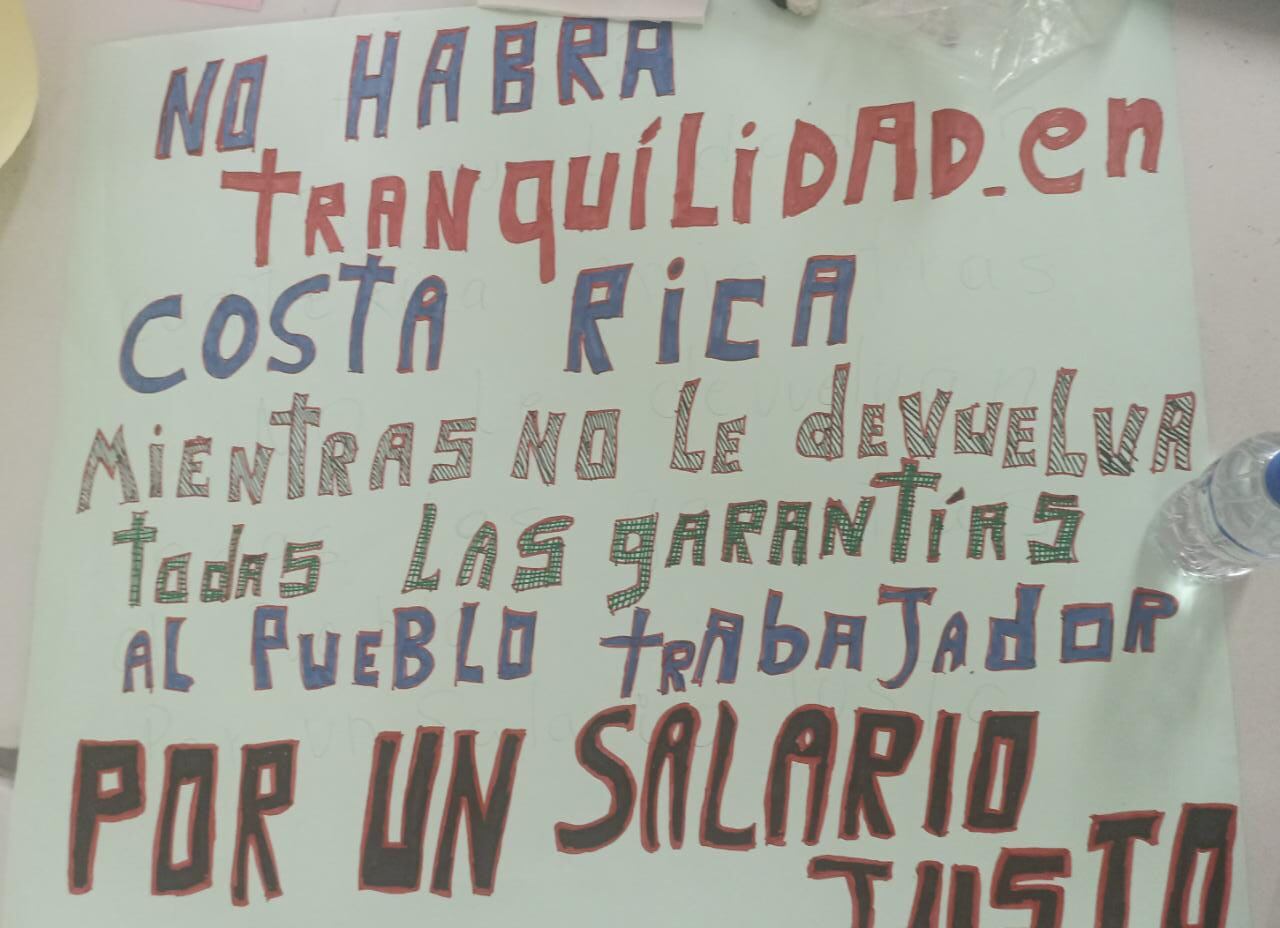 NO HABRA
tRANquíLiDAD en
COStA RicA
MiENtRAS NO LE dEVUELVA
todAS LAS gARANtíAS
AL PUEBLO tRAbAJAdOR
POR UN SALARIO
JUSTO